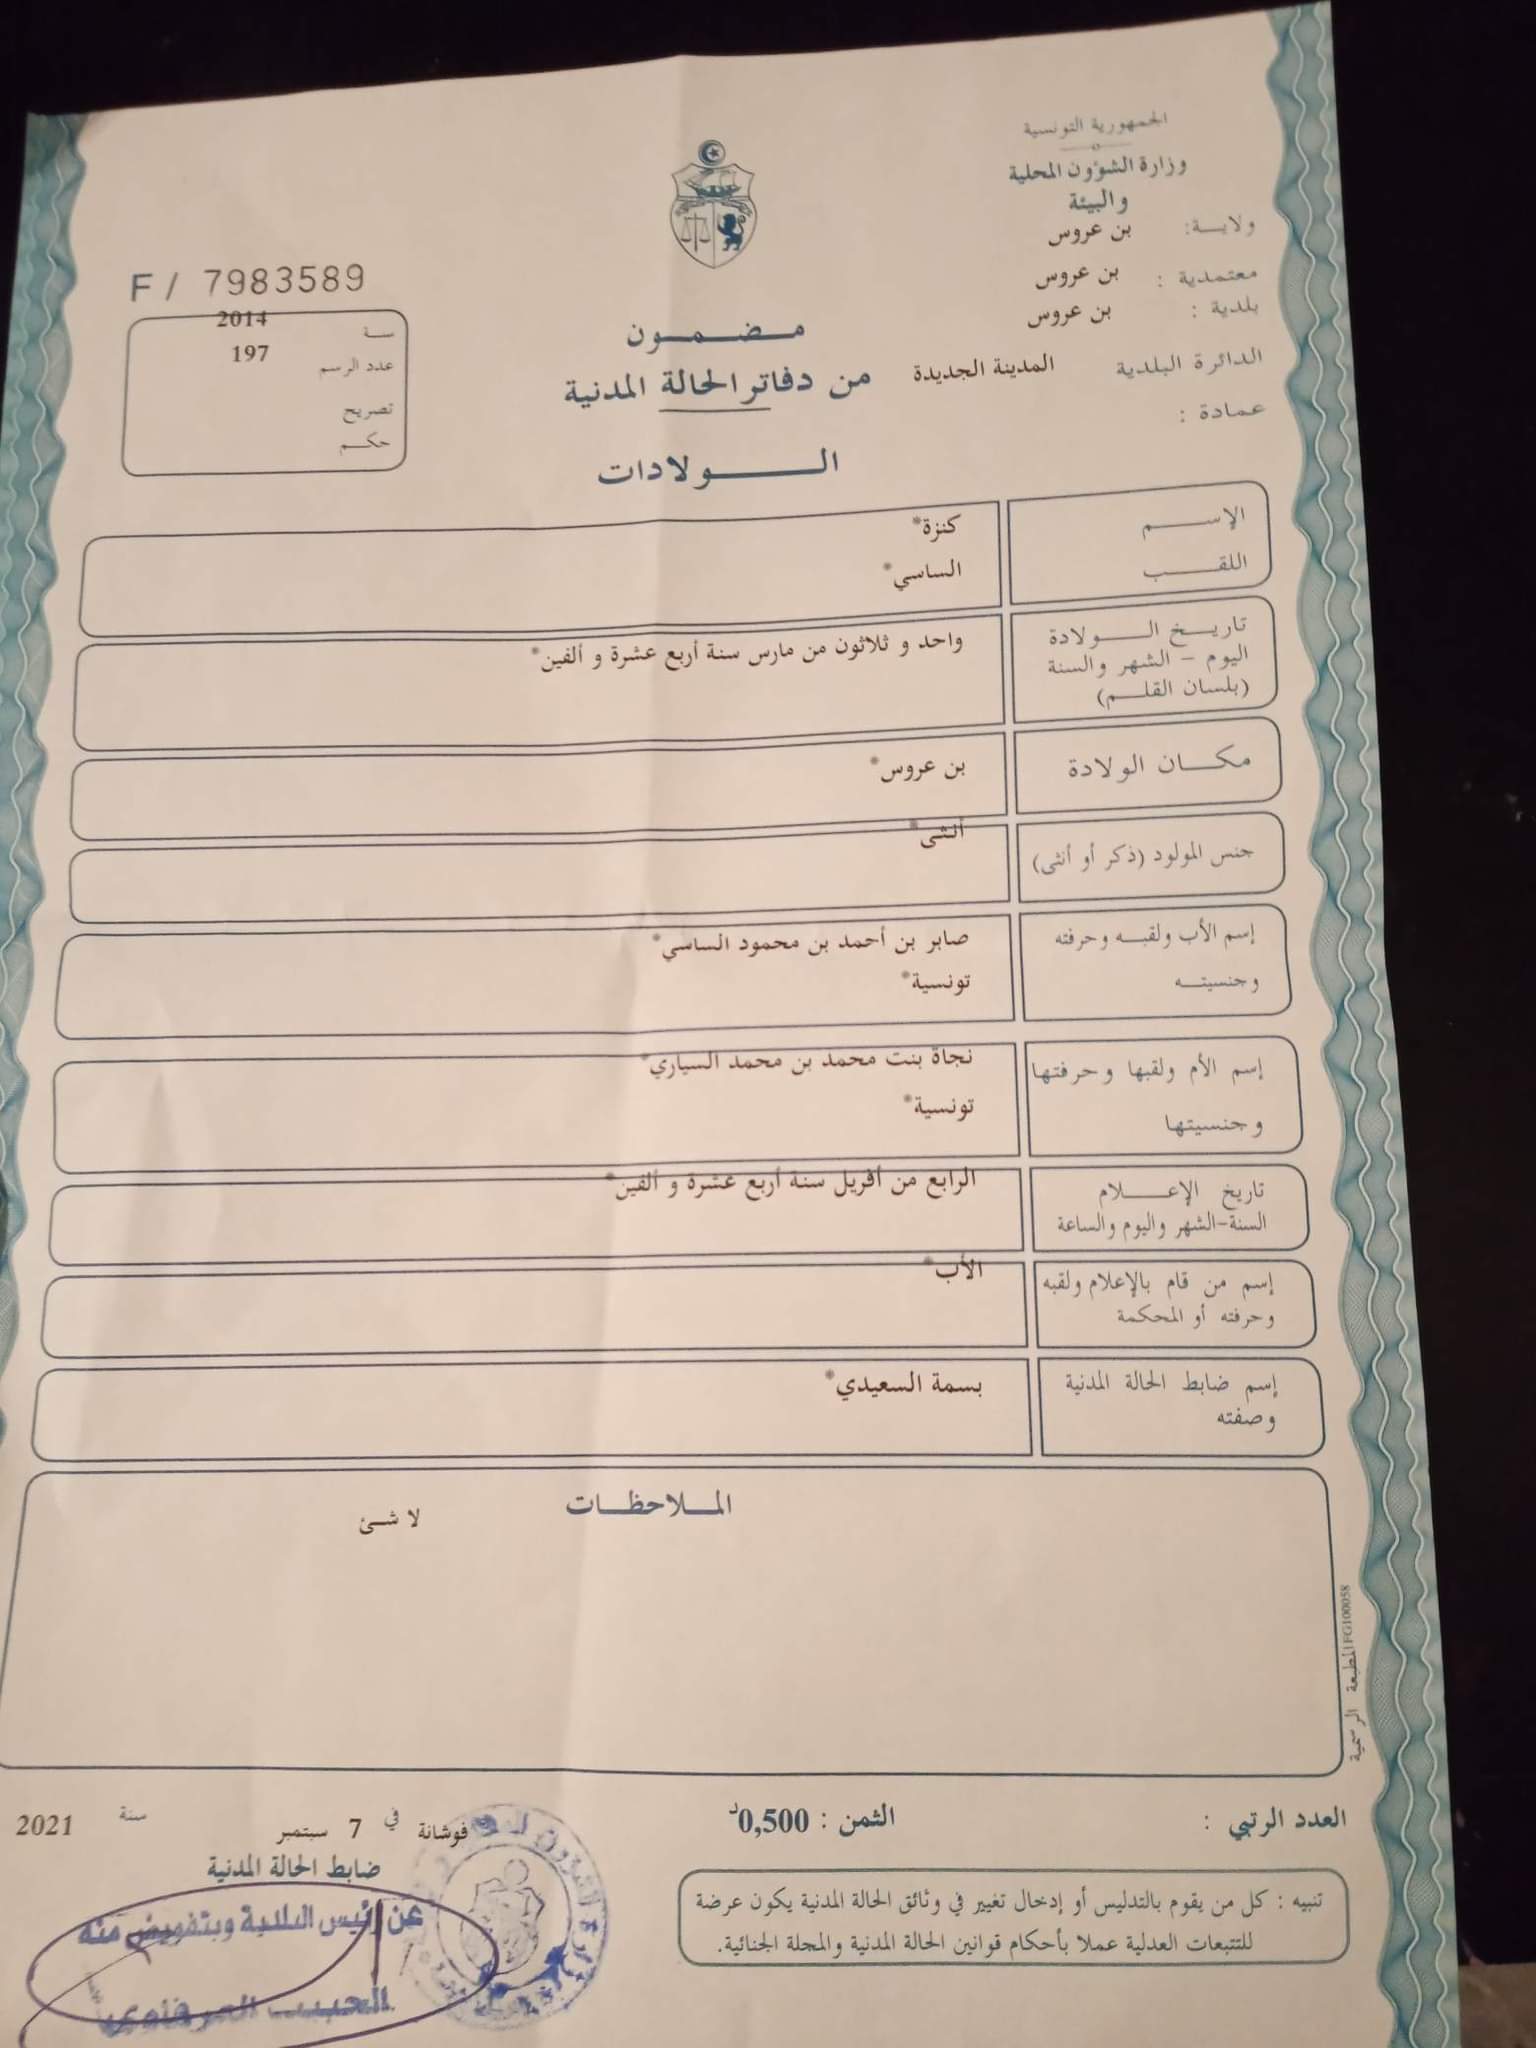 الجمهورية التونسية
وزارة الشؤون المحلية
والبيئة
ولايـــة: بن عروس
معتمدية : بن عروس
بلدية : بن عروس
الدائرة البلدية المدينة الجديدة
عمادة :
F / 7983589
سنة 2014
عدد الرسم 197
تصريح
حكم
مضمون
من دفاتر الحالة المدنية
الولادات
الإسم كنزة*
اللقب الساسي*
تاريخ الولادة واحد و ثلاثون من مارس سنة أربع عشرة و ألفين*
اليوم - الشهر والسنة
(بلسان القلم)
مكان الولادة بن عروس*
جنس المولود (ذكر أو أنثى) أنثى*
إسم الأب ولقبه وحرفته صابر بن أحمد بن محمود الساسي*
وجنسيته تونسية*
إسم الأم ولقبها وحرفتها نجاة بنت محمد بن محمد السياري*
وجنسيتها تونسية*
تاريخ الإعلام الرابع من أفريل سنة أربع عشرة و ألفين*
السنة-الشهر واليوم والساعة
إسم من قام بالإعلام ولقبه الأب*
وحرفته أو المحكمة
إسم ضابط الحالة المدنية بسمة السعيدي*
وصفته
الملاحظات
لا شئ
المطبعة الرسمية FG100058
العدد الرتبي :
الثمن : 0,500د
فوشانة في 7 سبتمبر سنة 2021
ضابط الحالة المدنية
عن رئيس البلدية وبتفويض منه
الحبيب
تنبيه : كل من يقوم بالتدليس أو إدخال تغيير في وثائق الحالة المدنية يكون عرضة
للتتبعات العدلية عملا بأحكام قوانين الحالة المدنية والمجلة الجنائية.